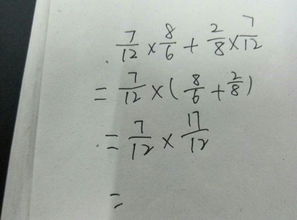 7/12 × 8/6 + 2/8 × 7/12
= 7/12 × ( 8/6 + 2/8 )
= 7/12 × 17/12
=